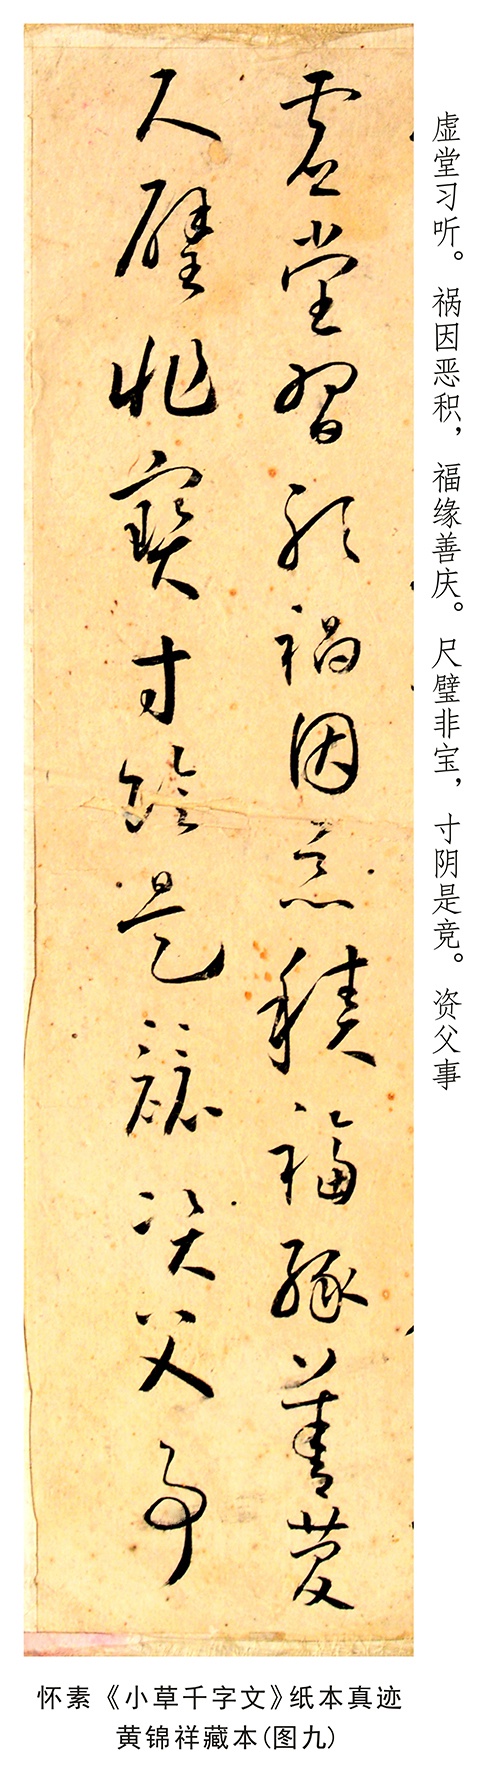 虚堂习听。祸因恶积，福缘善庆。尺璧非宝，寸阴是竞。资父事
虛堂習聽禍因惡積福緣善慶
尺璧非寶寸陰是競資父事
怀素《小草千字文》纸本真迹
黄锦祥藏本(图九)